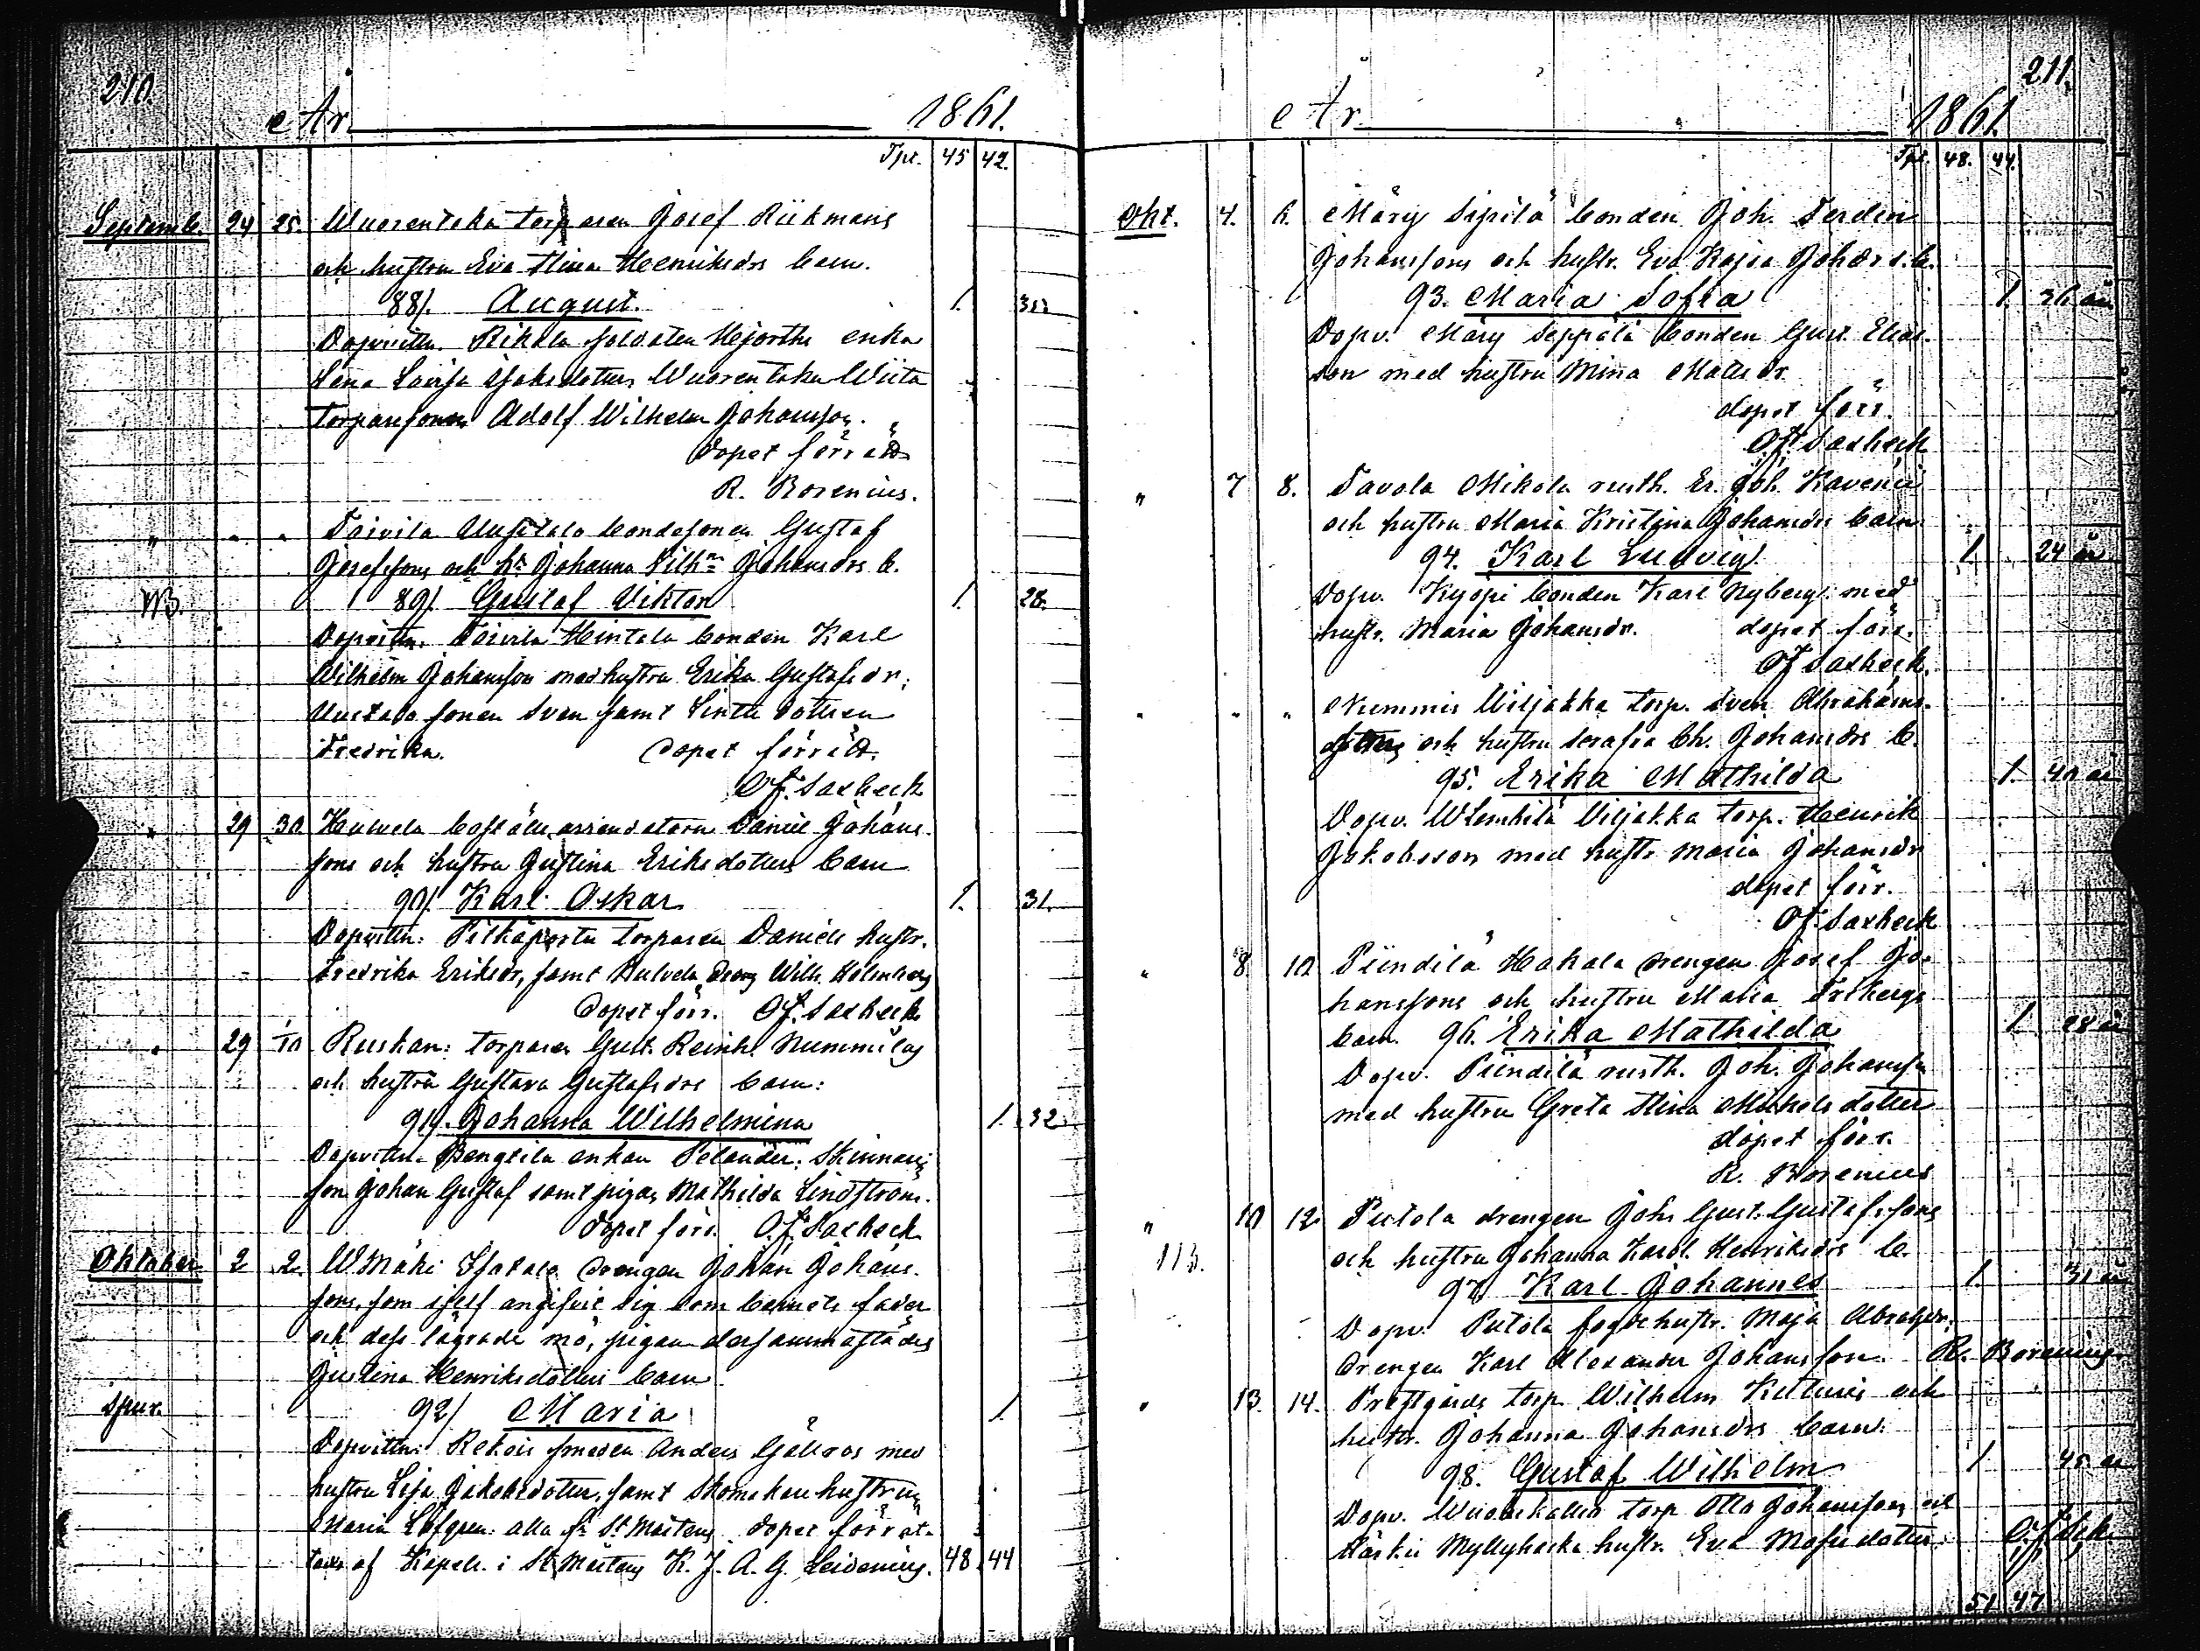 210.
År 1861.
Tpt. 45 42.
Septemb. 24 25. Wuorentaka torparen Josef Riikmans
och hustru Eva Stina Henriksdrs barn.
88/. August. 1.
Dopvittn. Rikala soldaten Hjorths enka
Lena Lovisa Jaksdotter, Wuorentaka Wiita
torparesonen Adolf Wilhelm Johansson.
Dopet förrätt.
R. Borenius.
" " " Toivila Uusitalo bondesonen Gustaf
Josefssons och h:s Johanna Vilh:a Johansdrs b.
NB. 89/. Gustaf Viktor 1. 28.
Dopvittn. Toivila Hintala bonden Karl
Wilhelm Johansson med hustru Erika Gustafsdr,
Uusitalo sonen Sven samt dottren
Fredrika. Dopet förrätt.
O.f. Saxbeck
" 29 30 bostäls arrendatorn Daniel Johans-
sons och hustru Gustina Eriksdotters barn
90/. Karl Oskar 1. 31.
Dopvittn: torparen Daniels hustr.
Fredrika Eriksdr, samt dreng Wilh. Holmberg
Dopet förr. O.f. Saxbeck
" 29 1/10 Ruskan: torparen Gust. Reinh. Nummilas
och hustru Gustava Gustafsdrs barn:
91/. Johanna Wilhelmina 1. 32.
Dopvittn. Bengtila enkan Skinnari
son Johan Gustaf samt pigan Mathilda Lindström.
Dopet förr. O.f. Saxbeck
Oktober 2 2. WMäki drengen Johan Johans-
sons, som sjelf angifvit sig som barnets fader
och dess lägrade mö, pigan dersammastädes
Gustina Henriksdotters barn.
spur. 92/ Maria 1.
Dopvittn: Rekois smeden Anders med
hustru Lisa Jakobsdotter, samt Skomakarehustrun
Maria Löfgren: alla fr. St Mårtens. dopet förrät-
tades af Kapell. i St Mårtens K. J. A. G. Leidenius. 48 44
211.
År 1861.
Tpt. 48. 44.
Okt. 4. 6. Märy Sipilä bonden Joh. Ferdin
Johanssons och hustr. Eva Kajsa Johdrs b.
93. Maria Sofia 1. 36 år
Dopv. Märy Seppälä bonden Gust. Elias-
son med hustru Mina Matsdr.
dopet förr.
O.f. Saxbeck
" 7 8. Tavola Mikola rusth. Er. Joh. Kavenii
och hustru Maria Kristina Johansdrs barn
94. Karl Ludvig. 1. 24 år
Dopv. bonden Karl Nyberg med
hustr. Maria Johansdr. dopet förr.
O.f. Saxbeck.
" " " Nummis Viljakka torp. Sven Abrahams-
och hustru Serafia Ch. Johansdrs b.
95. Erika Mathilda 1. 40 år
Dopv. Viljakka torp. Henrik
Jakobsson med hustr. Maria Johansdr
dopet förr.
O.f. Saxbeck
" 8 10 Piindilä Hakala drengen Josef Jo-
hanssons och hustru Maria Frebergs
barn. 96. Erika Mathilda 1. 28 år
Dopv. Piindilä rusth. Joh. Johansson
med hustru Greta Stina Mikelsdotter
dopet förr.
R. Borenius
" 10 12. Putola drengen Johs Gust. Gustafssons
NB. och hustru Johanna Karol. Henriksdrs b.
97. Karl Johannes 1. 31 år
Dopv. Putola fogdehustr. Maja Abrahdr,
drengen Karl Alexander Johansson. R. Borenius
" 13. 14. Prestgårds torp. Wilhelm och
hustr. Johanna Johansdrs barn.
98. Gustaf Wilhelm 1 45 år
Dopv. torp Otto Johansson och
Myllyharka hustr. Eva Matsdotter.
51 47